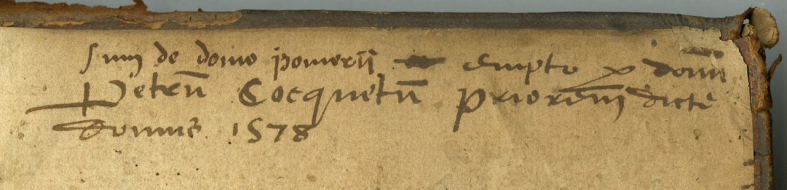 Sum de domo pomerij empto p domī
Petrū Cocquetū Priorem dicte
domus 1578